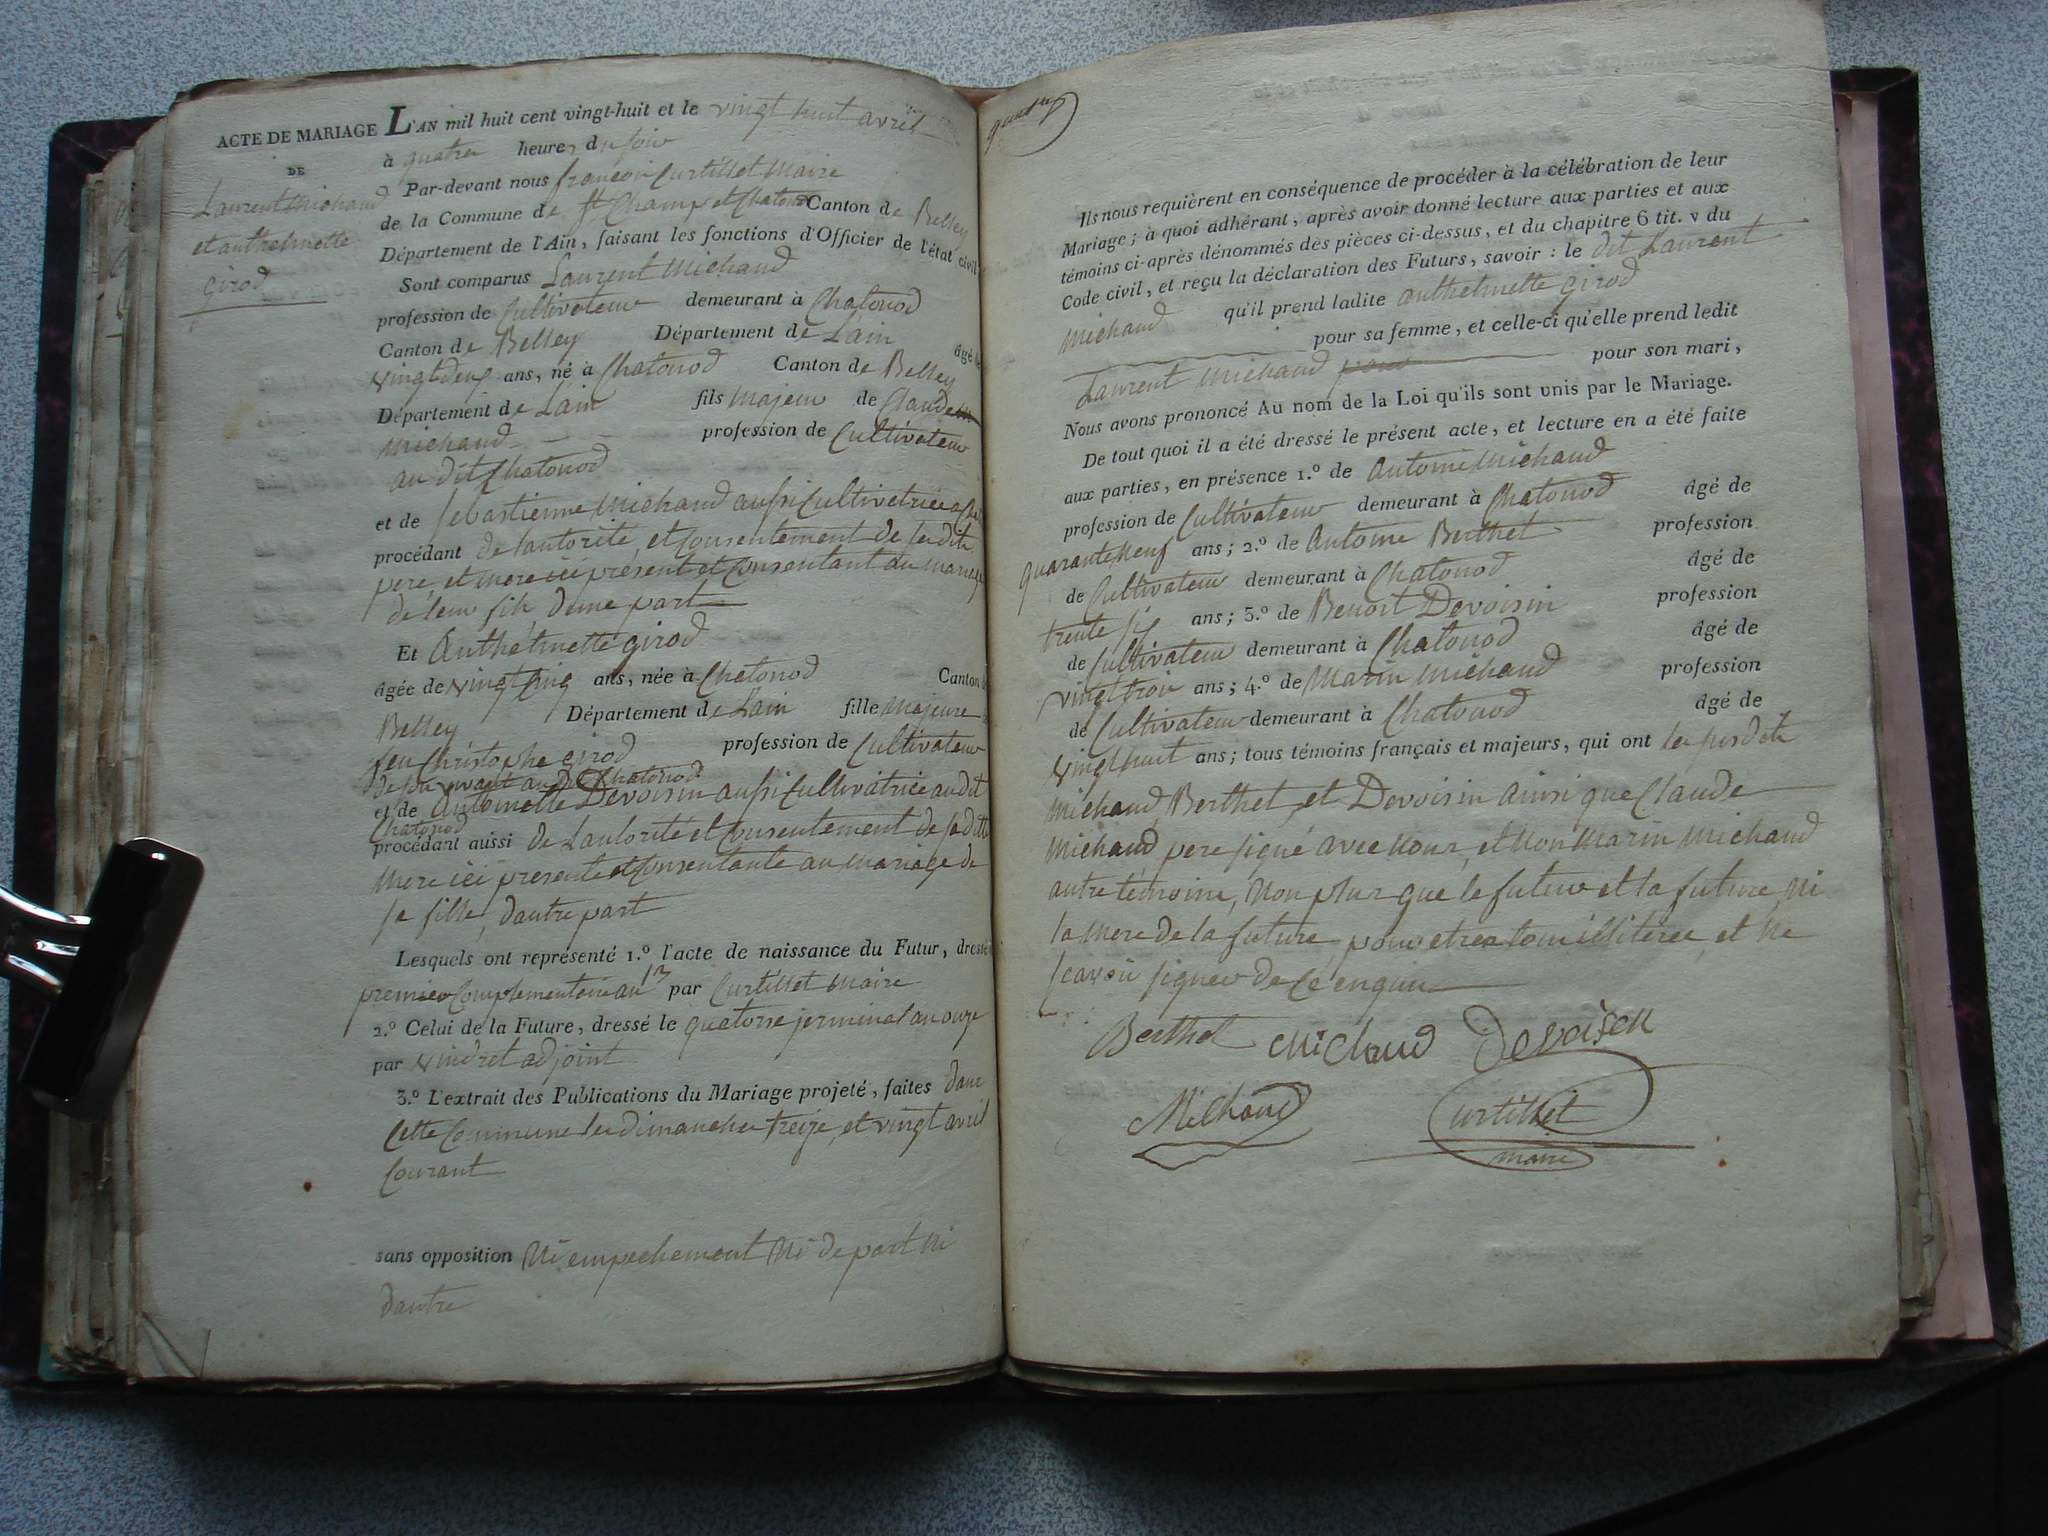 ACTE DE MARIAGE
DE
Laurent Michaud
et anthelmette
girod
L'AN mil huit cent vingt-huit et le vingt huit avril
à quatre heures du soir
Par-devant nous françois Curtillet Maire
de la Commune de St Champ et Chatonod Canton de Belley
Département de l'Ain, faisant les fonctions d'Officier de l'état civil
Sont comparus Laurent Michaud
profession de Cultivateur demeurant à Chatonod
Canton de Belley Département de Lain âgé de
vingtdeux ans, né à Chatonod Canton de Belley
Département de Lain fils Majeur de Claude
Michaud profession de Cultivateur
au dit Chatonod
et de Sebastienne Michaud aussi Cultivatrice a
procédant de lautorité et Consentement de ses dits
pere et mere ici présent et Consentant au mariage
de leur fils dune part
Et Anthelmette girod
âgée de vingt cinq ans, née à Chatonod Canton de
Belley Département de Lain fille Majeure
feu Christophe girod profession de Cultivateur
de son vivant audit Chatonod
et de Antoinette Devoisin aussi Cultivatrice audit
Chatonod
procédant aussi de Lautorité et Consentement de sa dite
Mere ici presente et Consentante au mariage de
sa fille, dautre part
Lesquels ont représenté 1.º l'acte de naissance du Futur, dressé
premier Complementaire an 13 par Curtillet Maire
2.º Celui de la Future, dressé le quatorse jerminal an onze
par vindret adjoint
3.º L'extrait des Publications du Mariage projeté, faites dans
Cette Commune les dimanches treize et vingt avril
Courant
sans opposition Ni empechement Ni de part ni
dautre
Ils nous requièrent en conséquence de procéder à la célébration de leur
Mariage; à quoi adhérant, après avoir donné lecture aux parties et aux
témoins ci-après dénommés des pièces ci-dessus, et du chapitre 6 tit. v du
Code civil, et reçu la déclaration des Futurs, savoir: le dit Laurent
Michaud qu'il prend ladite anthelmette girod
pour sa femme, et celle-ci qu'elle prend ledit
Laurent Michaud pour son mari,
Nous avons prononcé Au nom de la Loi qu'ils sont unis par le Mariage.
De tout quoi il a été dressé le présent acte, et lecture en a été faite
aux parties, en présence 1.º de Antoine Michaud
profession de Cultivateur demeurant à Chatonod âgé de
quarante neuf ans; 2.º de Antoine Berthet profession
de Cultivateur demeurant à Chatonod âgé de
trente six ans; 3.º de Benoit Devoisin profession
de Cultivateur demeurant à Chatonod âgé de
vingt trois ans; 4.º de Marin Michaud profession
de Cultivateur demeurant à Chatonod âgé de
vingt huit ans; tous témoins français et majeurs, qui ont les susdits
Michaud, Berthet et Devoisin ainsi que Claude
Michaud pere signé avec nous, et Non Marin Michaud
autre témoins, Non plus que le futur et la future, Ni
la Mere de la future, pour etres tous illiterés, et Ne
scavoir signer de Ce enquis
Berthet Michaud Devoisin
Michaud Curtillet
maire